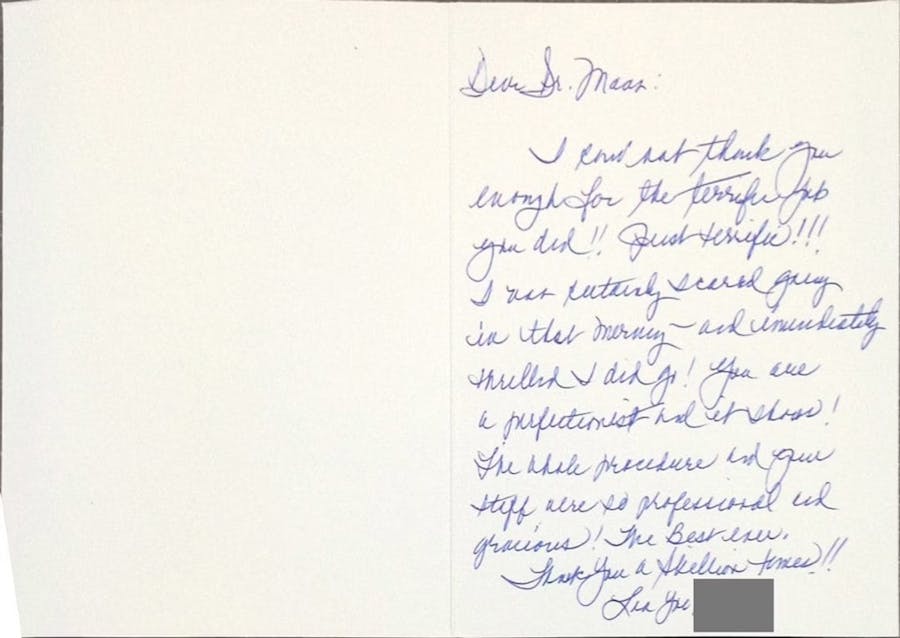 Dear Dr. Maas:
I can not thank you
enough for the terrific job
you did!! Just terrific!!!
I was certainly scared going
in that morning - and immediately
thrilled I did go! You are
a perfectionist and it shows!
The whole procedure and your
staff were so professional and
gracious! The Best ever.
Thank You a Skillion times!!